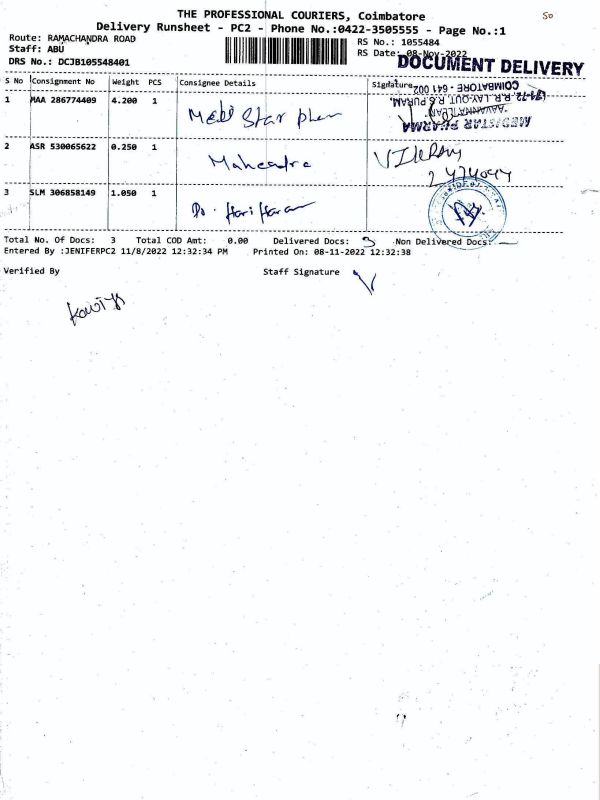 THE PROFESSIONAL COURIERS, Coimbatore
50
Delivery Runsheet - PC2 - Phone No.:0422-3505555 - Page No.:1
Route: RAMACHANDRA ROAD
RS No.: 1055484
Staff: ABU
RS Date: 08-Nov-2022
DRS No.: DCJB105548401
DOCUMENT DELIVERY
S No Consignment No Weight PCS Consignee Details Signature
1 MAA 286774409 4.200 1 Medi Star phar
MEDISTAR PHARMA
R.S.PURAM,
COIMBATORE - 641 002
2 ASR 530065622 0.250 1 Mahendra VIKRAM
3 SLM 306858149 1.050 1 Dr. Hari Haran
Total No. Of Docs: 3 Total COD Amt: 0.00 Delivered Docs: 3 Non Delivered Docs: —
Entered By :JENIFERPC2 11/8/2022 12:32:34 PM Printed On: 08-11-2022 12:32:38
Verified By Staff Signature